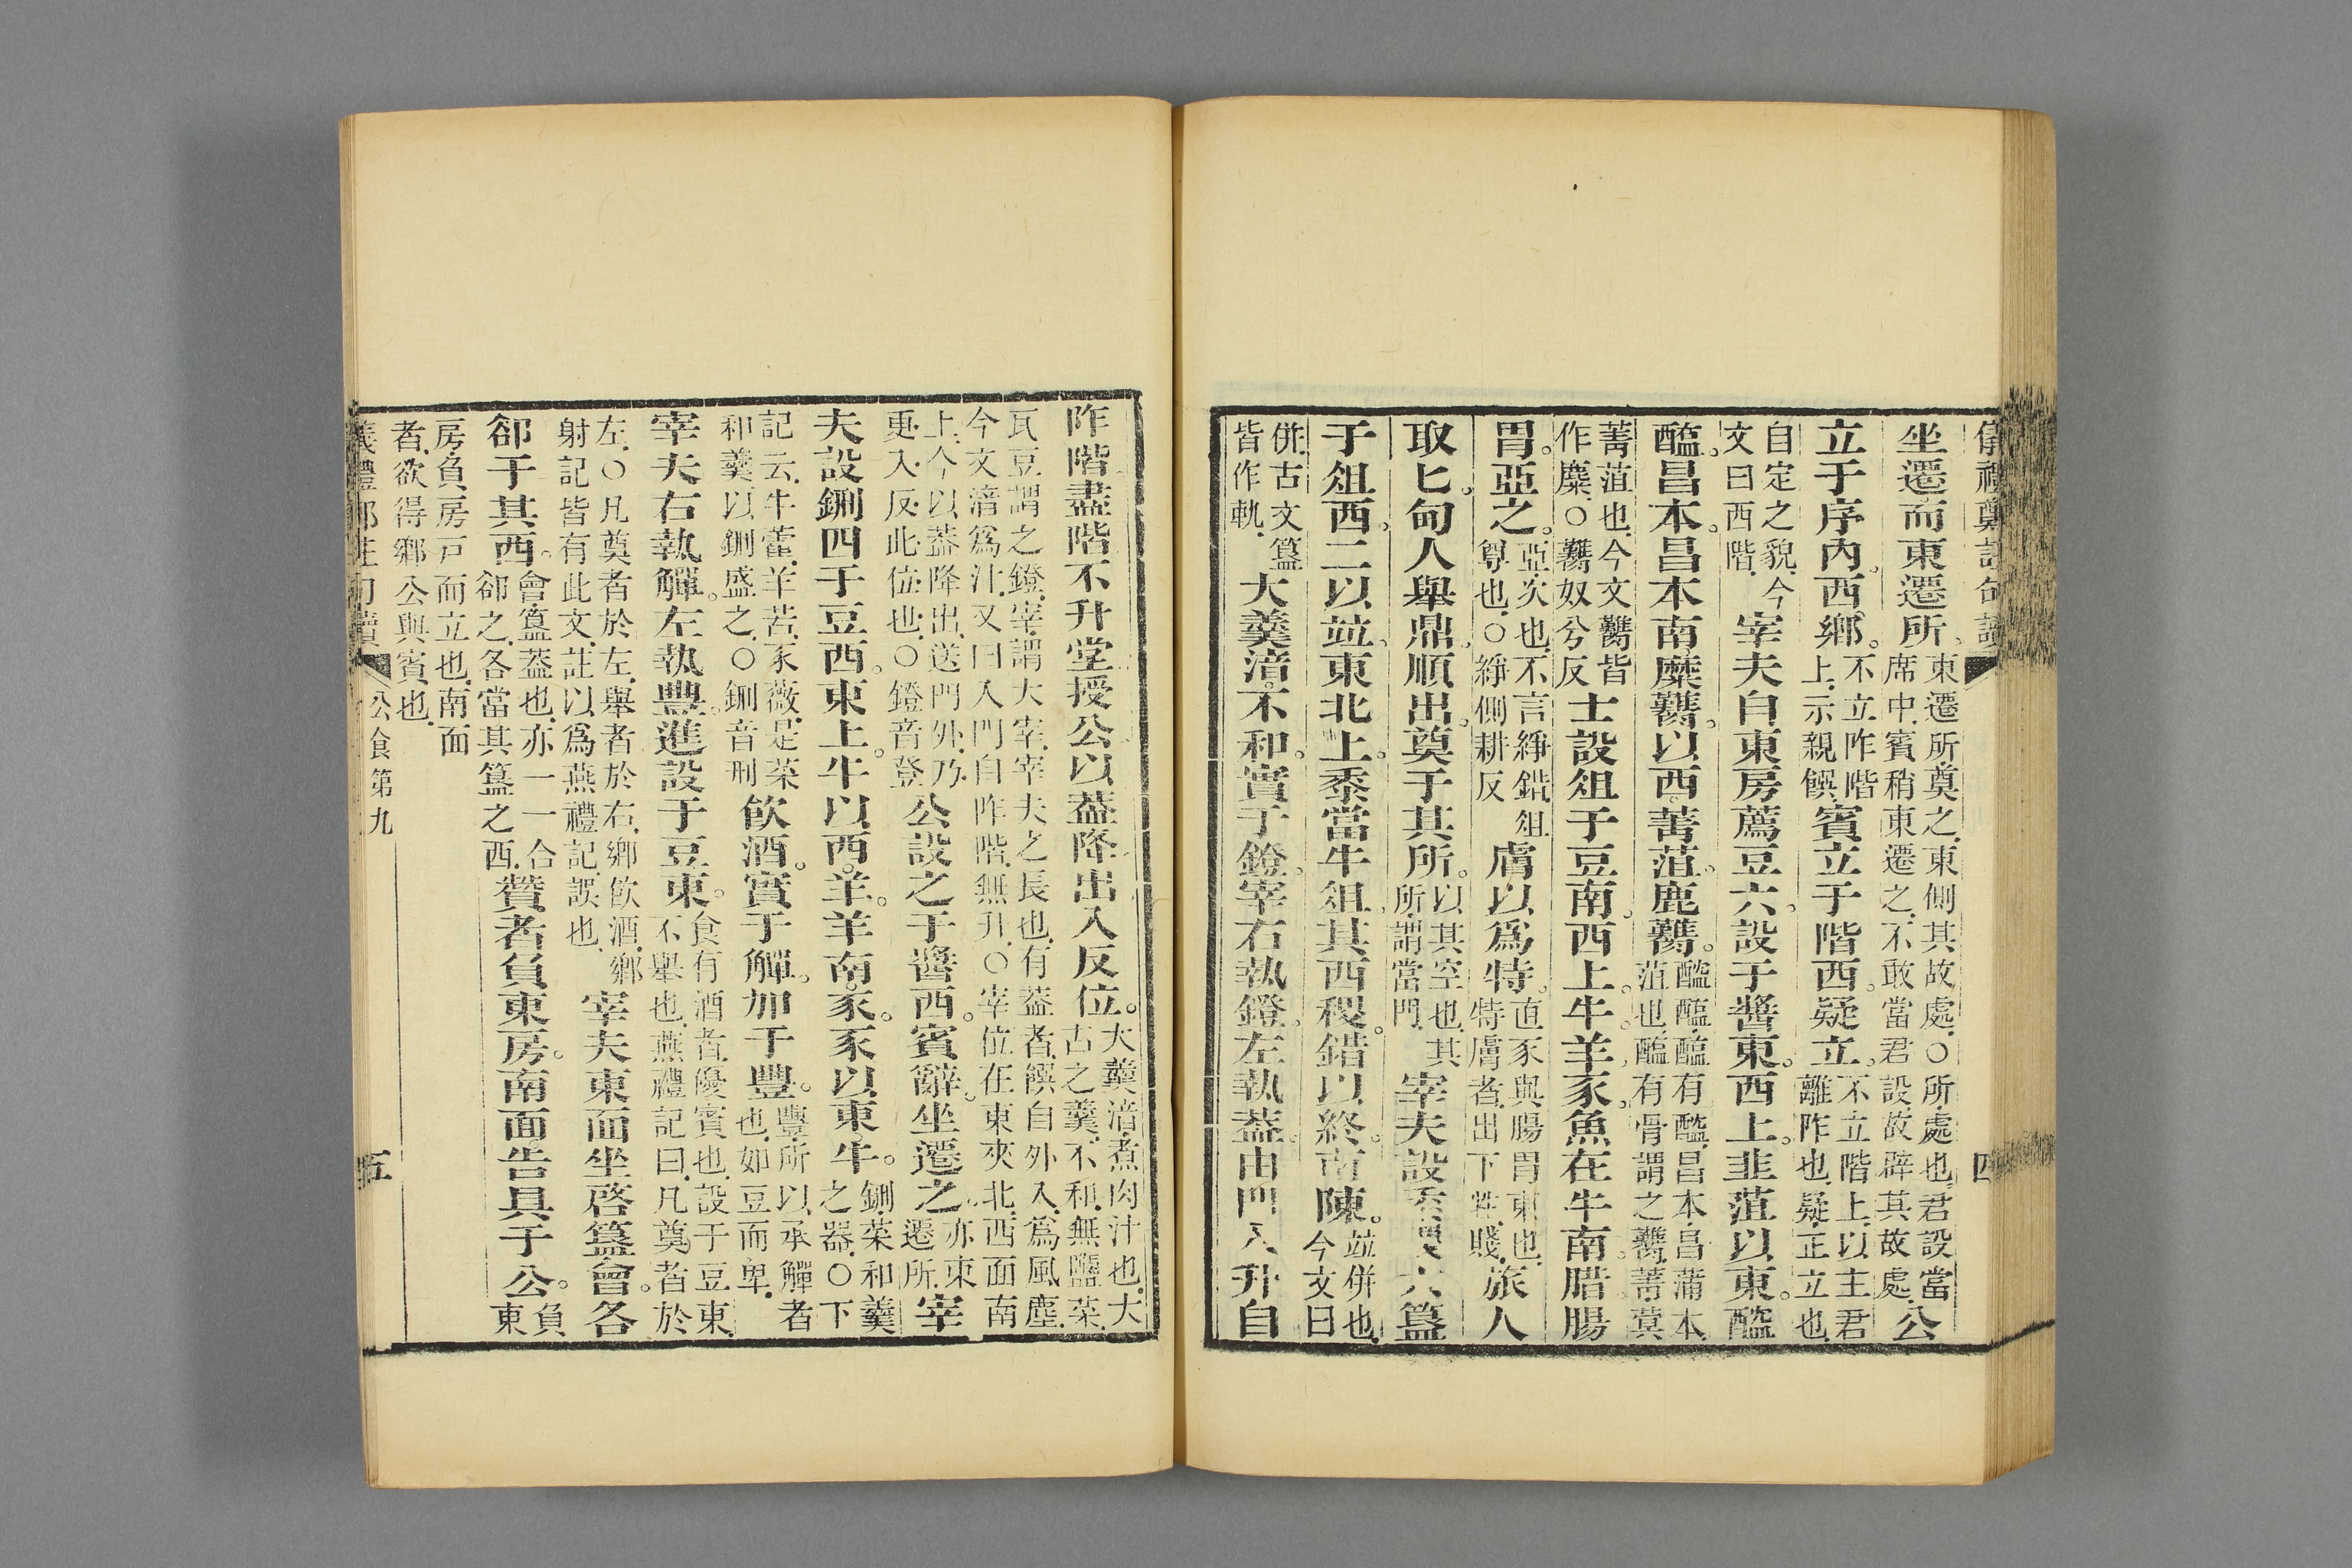 儀禮鄭註句讀
四
坐遷而東遷所東遷所奠之東側其故處○所處也君設當席中賓稍東遷之不敢當君設故辟其故處公
立于序内西鄉不立阼階上示親饌賓立于階西疑立不立階上以主君離阼也疑正立也
自定之貌今文曰西階宰夫自東房薦豆六設于醬東西上韭菹以東醓
醢昌本昌本南麋臡以西菁菹鹿臡醓醢醢有醓昌本昌蒲本菹也醢有骨謂之臡菁蓂
菁菹也今文臡皆作麋○臡奴兮反士設俎于豆南西上牛羊豕魚在牛南腊腸
胃亞之亞次也不言綪錯俎尊也○綪側耕反膚以爲特直豕與腸胃東也特膚者出下牲賤旅人
取匕甸人舉鼎順出奠于其所以其空也其所謂當門宰夫設黍稷六簋
于俎西二以竝東北上黍當牛俎其西稷錯以終南陳竝併也今文曰
併古文簋皆作軌大羹湆不和實于鐙宰右執鐙左執蓋由門入升自
阼階盡階不升堂授公以蓋降出入反位大羹湆煮肉汁也大古之羹不和無鹽菜
瓦豆謂之鐙宰謂大宰宰夫之長也有蓋者饌自外入爲風塵今文湆爲汁又曰入門自阼階無升○宰位在東夾北西面南
上今以蓋降出送門外乃更入反此位也○鐙音登公設之于醬西賓辭坐遷之亦東遷所宰
夫設鉶四于豆西東上牛以西羊羊南豕豕以東牛鉶菜和羹之器○下
記云牛藿羊苦豕薇是菜和羹以鉶盛之○鉶音刑飲酒實于觶加于豐豐所以承觶者也如豆而卑
宰夫右執觶左執豐進設于豆東食有酒者優賓也設于豆東不舉也燕禮記曰凡奠者於
左○凡奠者於左舉者於右鄉飲酒鄉射記皆有此文註以爲燕禮記誤也宰夫東面坐啓簋會各
卻于其西會簋蓋也亦一一合卻之各當其簋之西贊者負東房南面告具于公負東
房負房戸而立也南面者欲得鄉公與賓也
儀禮鄭註句讀 公食第九
五